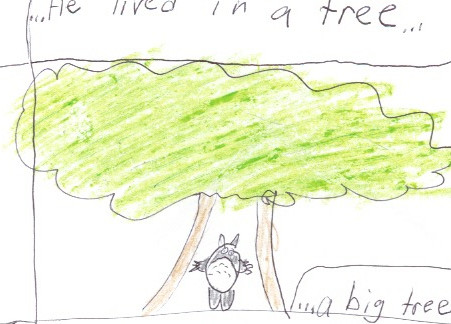 ...He lived in a tree...
...a big tree